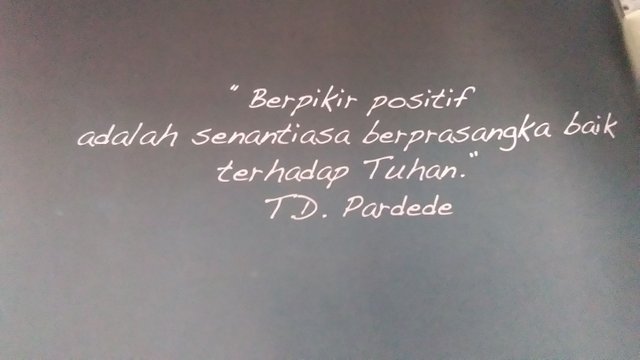 "Berpikir positif
adalah senantiasa berprasangka baik
terhadap Tuhan."
TD. Pardede